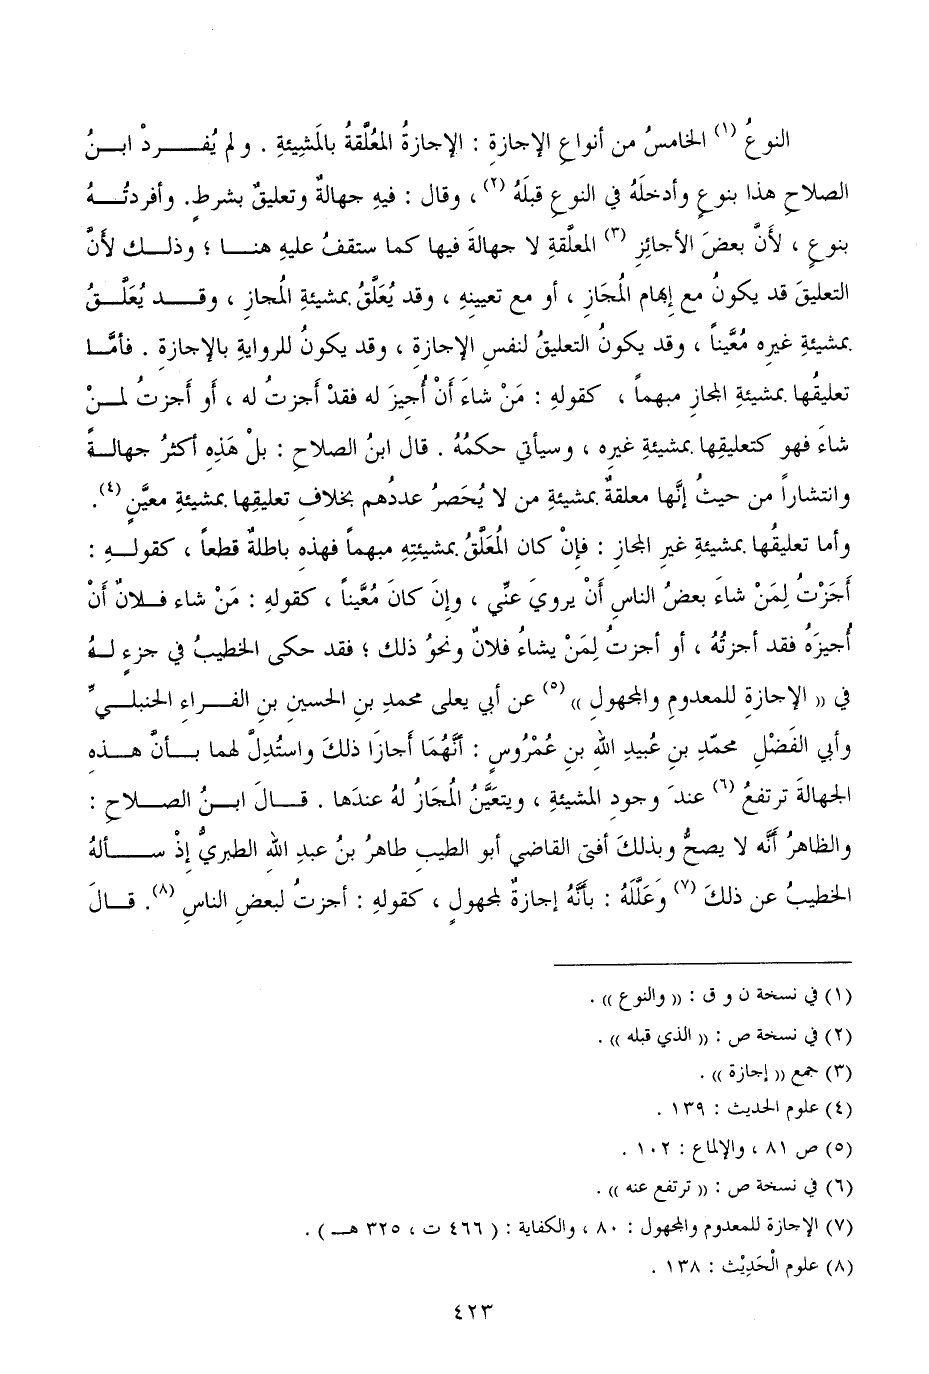 النوعُ (١) الخامسُ من أنواعِ الإجازةِ : الإجازةُ المُعَلَّقةُ بالمَشِيئةِ . ولم يُفـــردْ ابـنُ
الصلاحِ هذا بنوعٍ وأدخلَهُ في النوعِ قبلَهُ (٢) ، وقال : فيهِ جهالةٌ وتعليقٌ بشرطٍ. وأفردتُـــهُ
بنوعٍ ، لأَنَّ بعضَ الأجائزِ (٣) المعلَّقةِ لا جهالةَ فيها كما ستقفُ عليهِ هنـــا ؛ وذلــك لأنَّ
التعليقَ قد يكونُ مع إبهامِ المُجَازِ ، أو مع تعيينهِ ، وقد يُعَلَّقُ بمشيئةِ المُجازِ ، وقـــد يُعَلَّــقُ
بمشيئةِ غيرهِ مُعَّيناً ، وقد يكونُ التعليقُ لنفسِ الإجازةِ ، وقد يكونُ للروايةِ بالإجازةِ . فأمَّــا
تعليقُها بمشيئةِ المجازِ مبهماً ، كقولهِ : مَنْ شاءَ أَنْ أُجيزَ له فقدْ أَجزتُ له ، أَو أَجزتُ لمــنْ
شاءَ فهو كتعليقِها بمشيئةِ غيرهِ ، وسيأتي حكمُهُ . قال ابنُ الصلاحِ : بلْ هَذِهِ أكثرُ جهالــةً
وانتشاراً من حيثُ إنَّها معلقةٌ بمشيئةِ من لا يُحَصرُ عددُهم بخلافِ تعليقِها بمشيئةِ معيَّنٍ (٤).
وأما تعليقُها بمشيئةِ غيرِ المجازِ : فإنْ كان المُعَلَّقُ بمشيئتِهِ مبهماً فهذهِ باطلةٌ قطعاً ، كقولــهِ :
أَجَزْتُ لِمَنْ شاءَ بعضُ الناسِ أَنْ يرويَ عَنِّي ، وإن كانَ مُعَّيناً ، كقولهِ : مَنْ شاء فــلانٌ أَنْ
أُجيزَهُ فقد أجزتُهُ ، أو أجزتُ لِمَنْ يشاءُ فلانٌ ونحوُ ذلك ؛ فقد حكى الخطيبُ في جزءٍ لــهُ
في « الإجازةِ للمعدومِ والمجهولِ » (٥) عن أبي يعلى محمدِ بنِ الحسينِ بنِ الفــراءِ الحنبلــيِّ
وأبي الفَضْلِ محمّدِ بن عُبيدِ اللهِ بنِ عمْرُوسٍ : أنَّهُمَا أجازَا ذلكَ واستُدِلَّ لهما بــأنَّ هــذه
الجهالةَ ترتفعُ (٦) عندَ وجودِ المشيئةِ ، ويتعَيَّنُ المُجَازُ لهُ عندَها . قــالَ ابــنُ الصــلاحِ :
والظاهرُ أنَّه لا يصحُّ وبذلكَ أفتى القاضي أبو الطيبِ طاهرُ بنُ عبدِ اللهِ الطبريُّ إذْ ســـألهُ
الخطيبُ عن ذلكَ (٧) وَعَلَّلَهُ : بأنَّهُ إجازةٌ لمجهولٍ ، كقولهِ : أجزتُ لبعضِ الناسِ (٨). قــالَ
(١) في نسخة ن و ق : « والنوع » .
(٢) في نسخة ص : « الذي قبله » .
(٣) جمع « إجازة » .
(٤) علوم الحديث : ١٣٩ .
(٥) ص ٨١ ، والإلماع : ١٠٢ .
(٦) في نسخة ص : « ترتفع عنه » .
(٧) الإجازة للمعدوم والمجهول : ٨٠ ، والكفاية : ( ٤٦٦ ت ، ٣٢٥ هــ ) .
(٨) علوم الْحَدِيْث : ١٣٨ .
٤٢٣